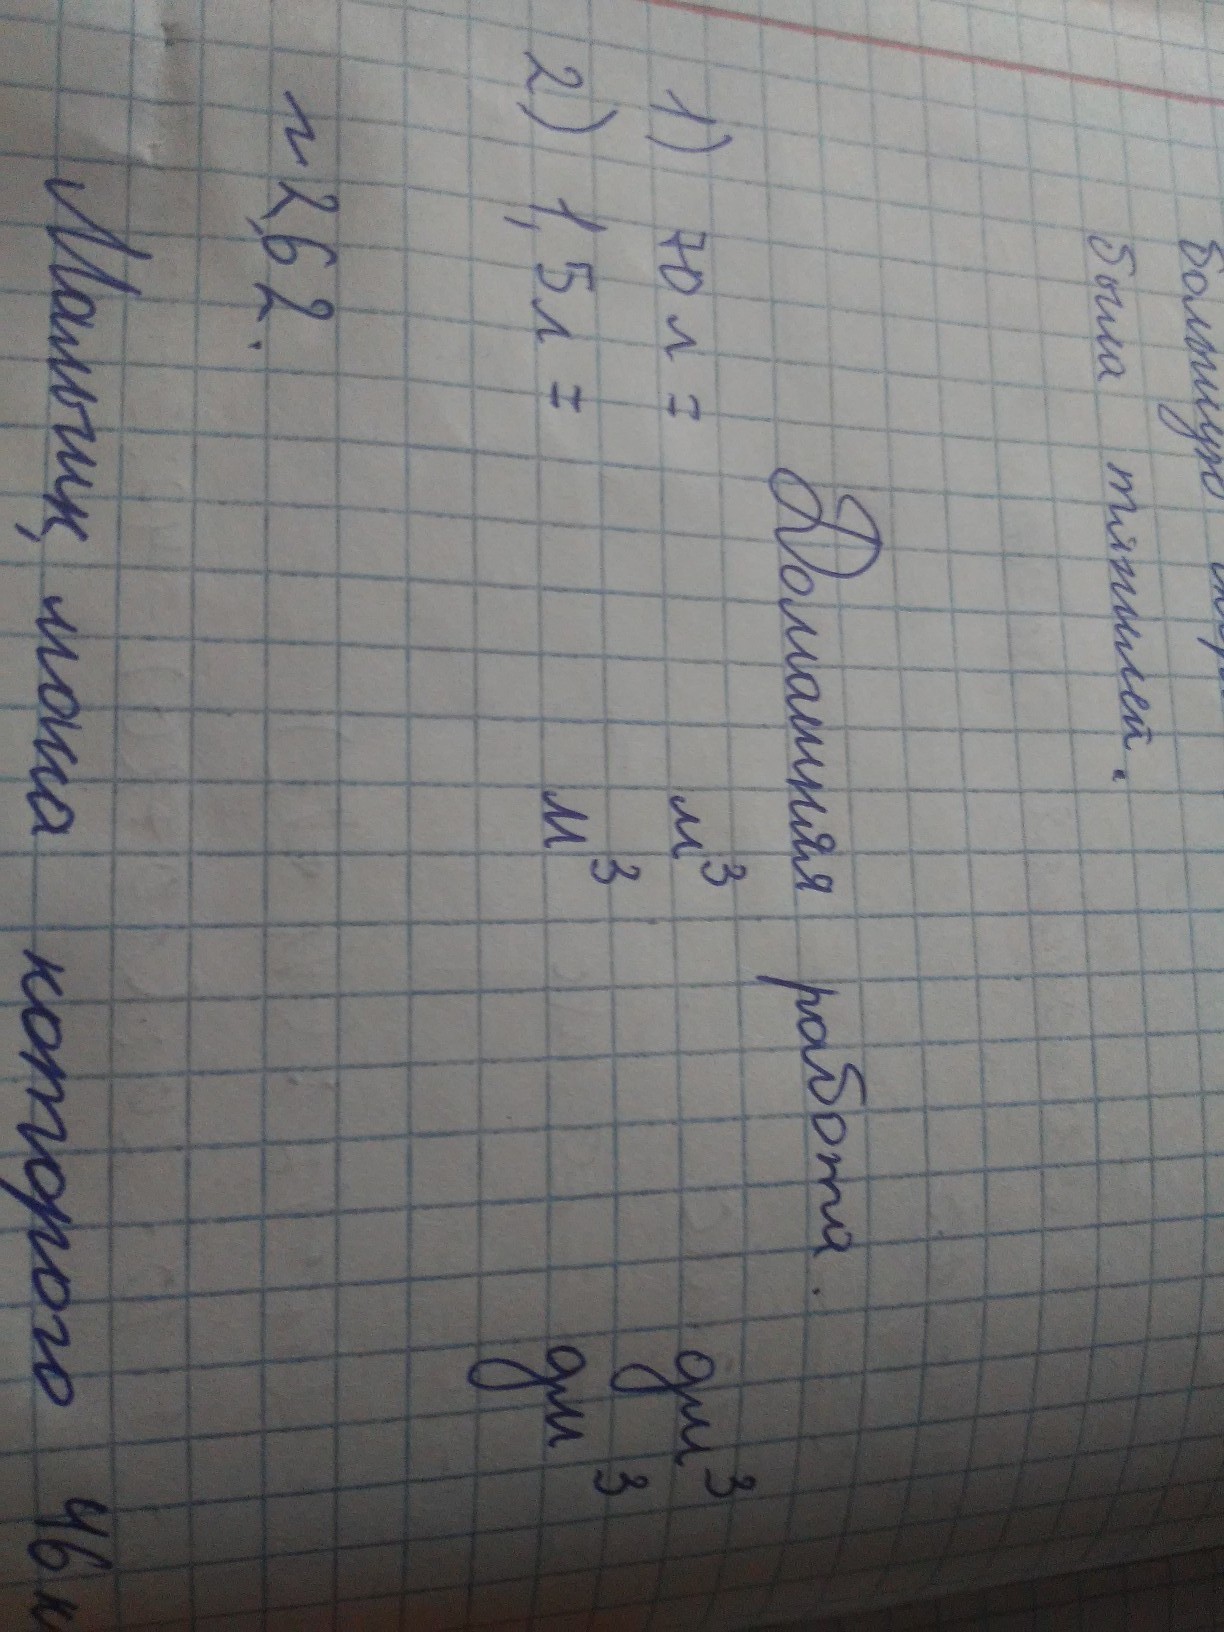 большую
была тяжилей.
Домашняя работа.
1) 70 л = м³ дм³
2) 1,5л = м³ дм³
n 2,62.
Мальчик, масса которого 46 к